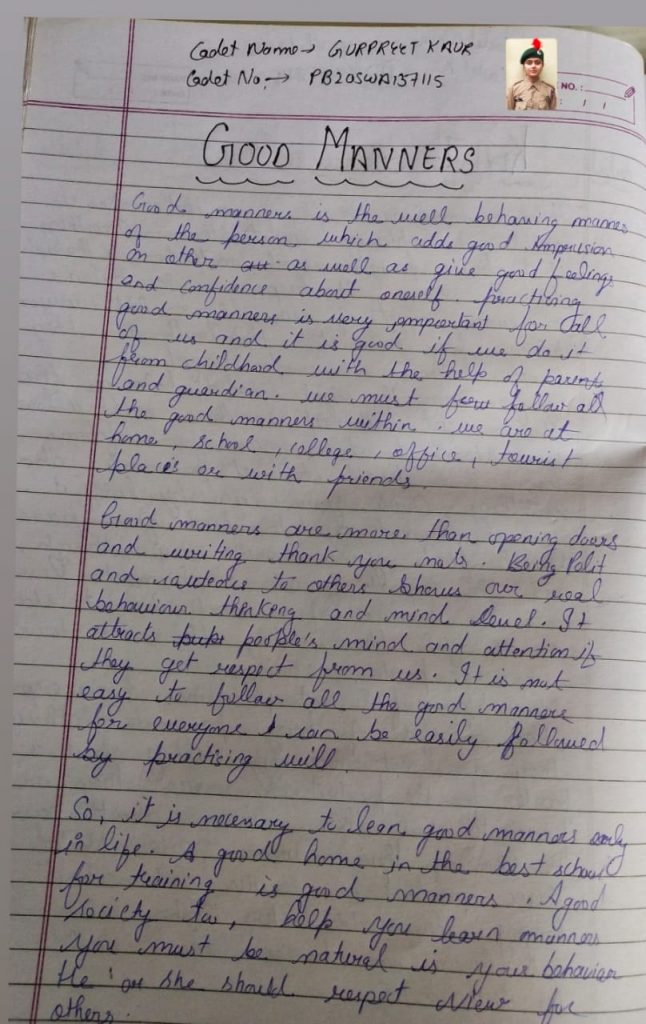 Cadet Name → GURPREET KAUR
Cadet No. → PB20SWA137115
NO. :
: / /
GOOD MANNERS
Good manners is the well behaving manner
of the person, which adds good impression
on other as well as give good feelings
and confidence about oneself. practising
good manners is very important for all
of us and it is good if we do it
from childhood with the help of parents
and guardian. we must follow all
the good manners within. we are at
home, school, college, office, tourist
places or with friends.
Good manners are more than opening doors
and writing thank you nots. Being Polit
and to others shows our real
behaviour thinking and mind level. It
attracts people's mind and attention if
they get respect from us. It is not
easy to follow all the good manners
for everyone can be easily followed
by practising will
So, it is necessary to lean good manners early
in life. A good home in the best school
for training is good manners. A good
society too, help you learn manners
you must be natural is your behavior
He or she should respect view for
others.